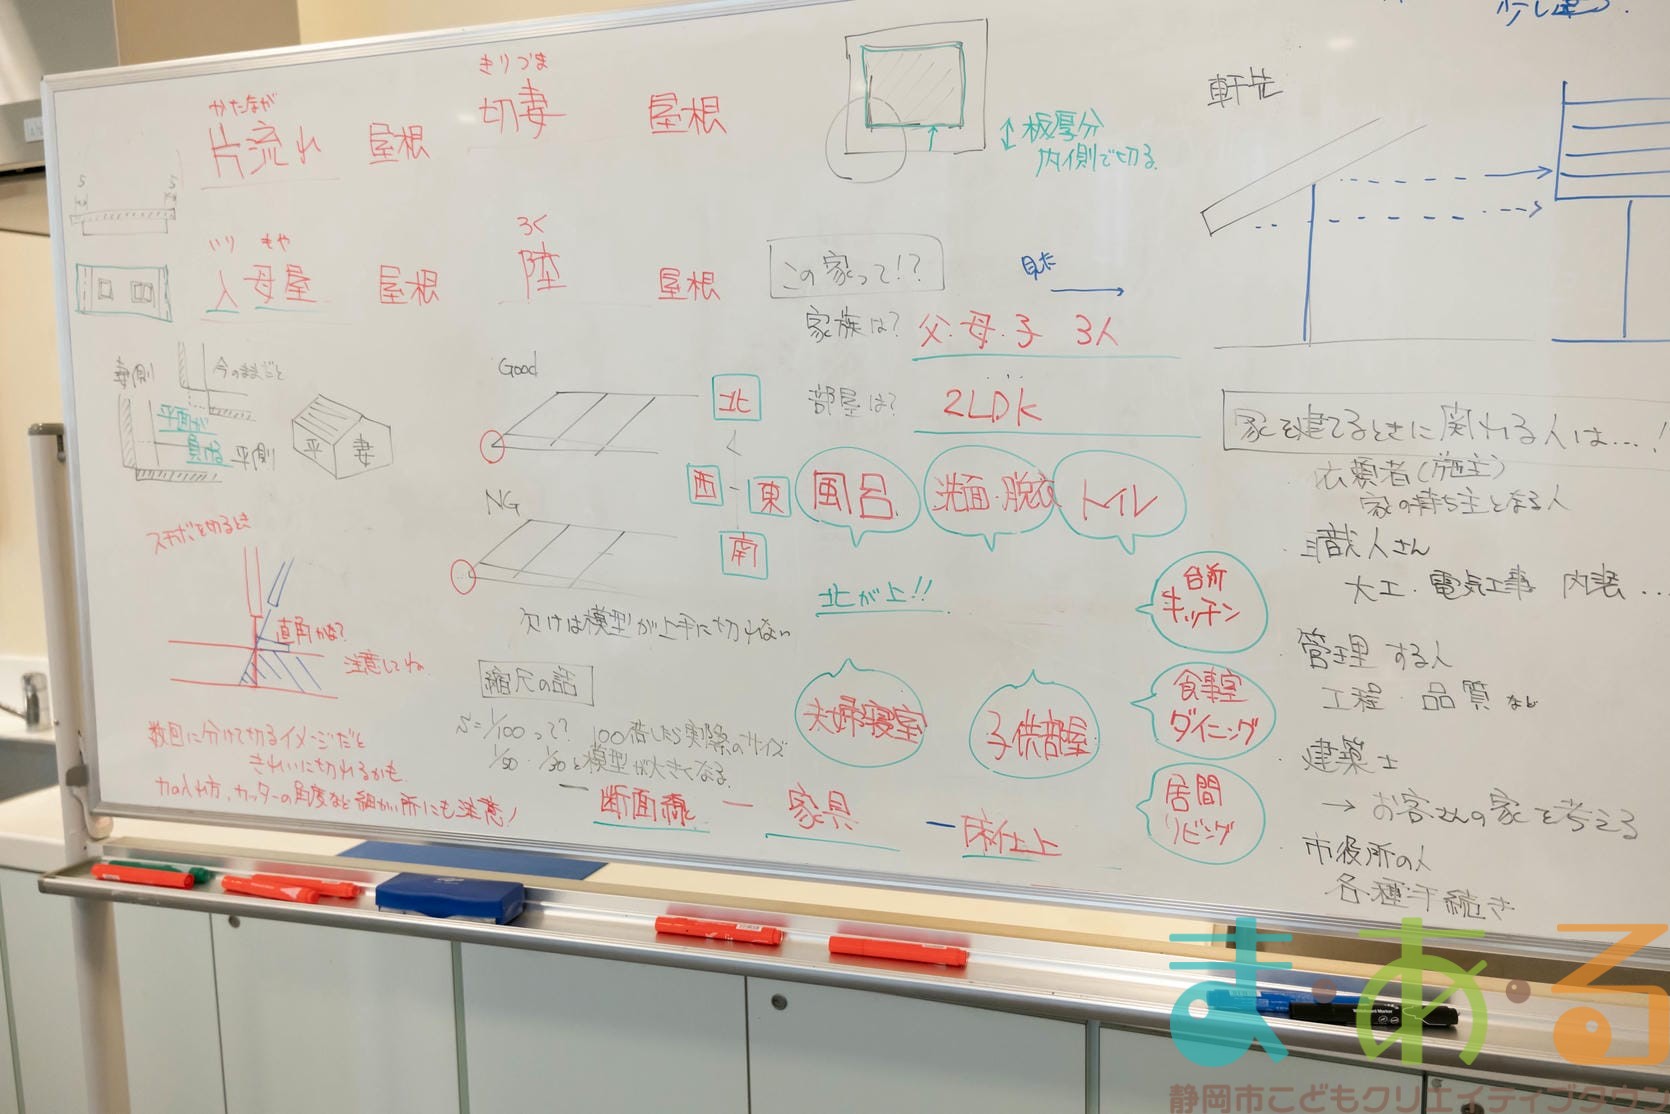 かたなが
片流れ 屋根
きりづま
切妻 屋根
いり もや
入母屋 屋根
ろく
陸 屋根
5 5
板厚分
内側で切る
軒先
見た
この家って!?
家族は? 父・母・子 3人
部屋は? 2LDK
妻側
今のままだと
平面が
負ける
平側
平 妻
Good
NG
北
西 - 東
南
風呂
洗面・脱衣
トイレ
北が上!!
台所
キッチン
食事室
ダイニング
居間
リビング
夫婦寝室
子供部屋
欠けは模型が上手に切れない
スチボを切るとき
直角かな?
注意してね
数回に分けて切るイメージだと
きれいに切れるかも
力の入れ方、カッターの角度など細かい所にも注意!
縮尺の話
S=1/100って? 100倍したら実際のサイズ
1/50・1/30と模型が大きくなる
断面線 家具 床仕上
家を建てるときに関われる人は…!
依頼者(施主)
家の持ち主となる人
職人さん
大工・電気工事 内装…
管理する人
工程・品質など
建築士
→ お客さんの家を考える
市役所の人
各種手続き
ま・あ・る
静岡市こどもクリエイティブタウン